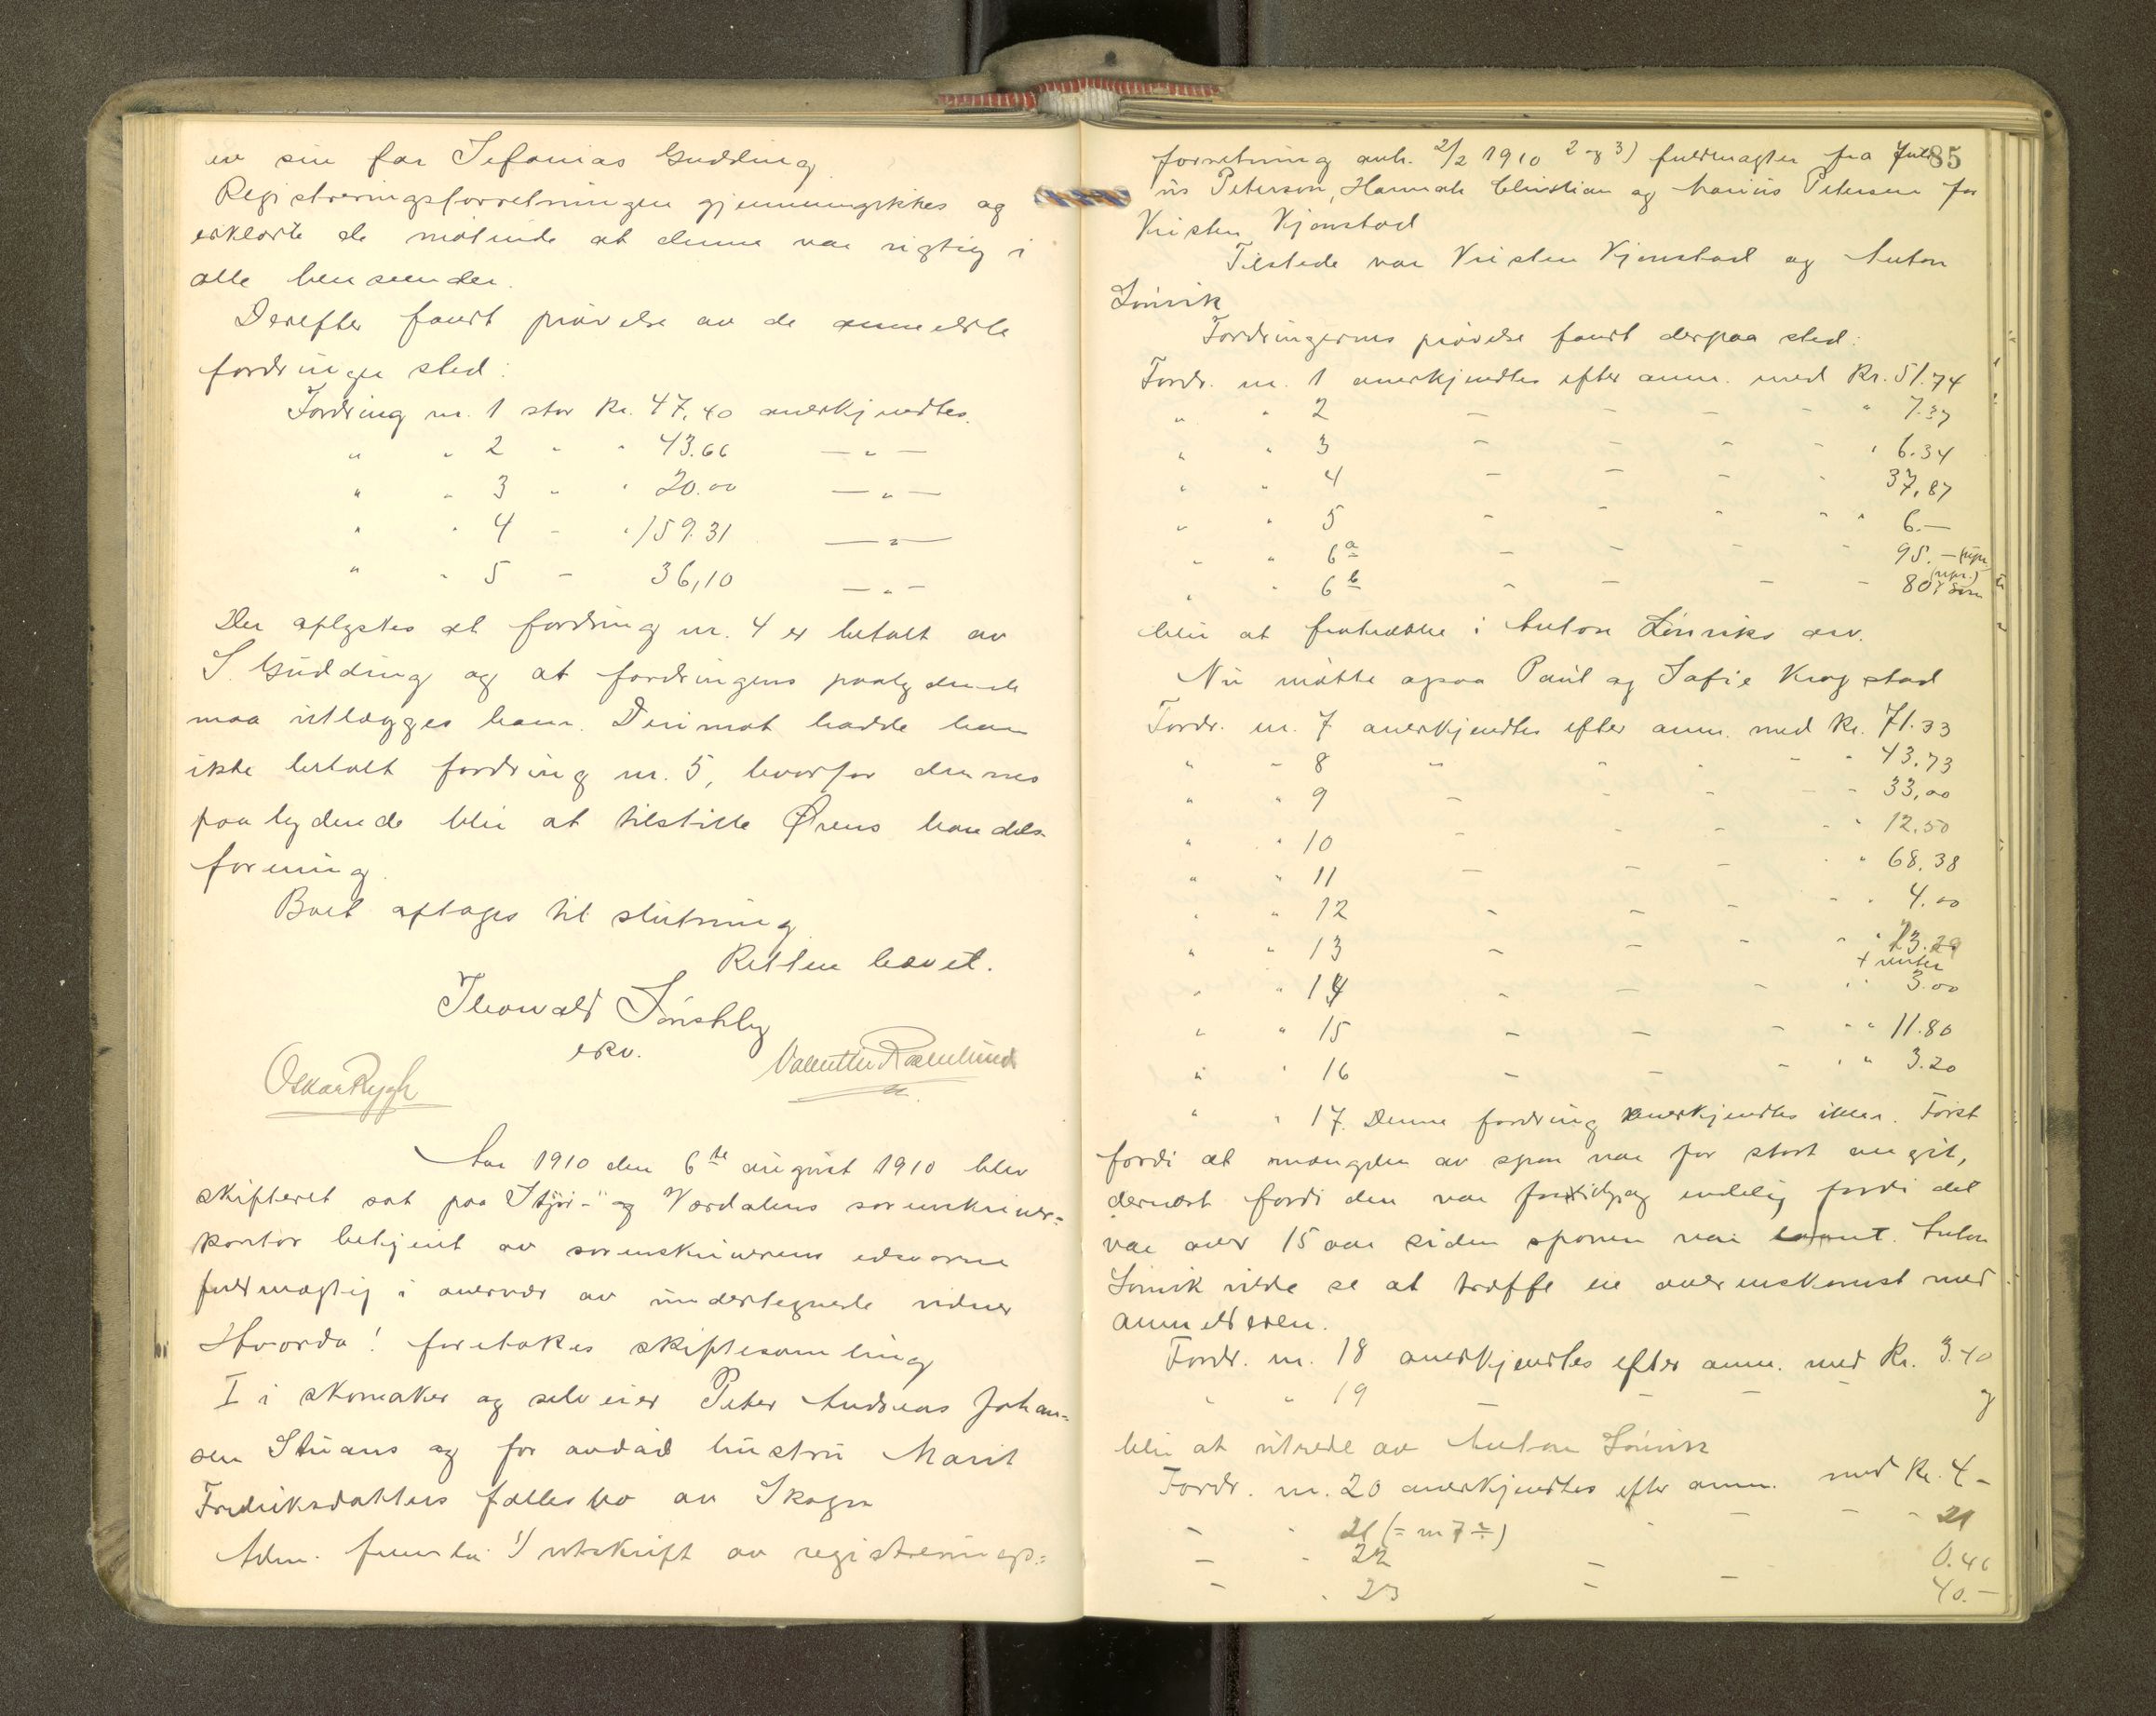 en sin far Sefanias Gudding
Registreringsforretningen gjennemgikkes og
erklærte de møtende at denne var rigtig i
alle henseender.
Derefter fandt prøvelse av de anmeldte
fordringer sted:
Fordring nr. 1 stor kr. 47,40 anerkjendtes.
" " 2 " " 43.66 — " —
" " 3 " " 20.00 — " —
" " 4 - " 159.31 — " —
" " 5 - 36,10 — " —
Der oplystes at fordring nr. 4 er betalt av
S. Gudding og at fordringens paalydende
maa utlægges ham. Derimot hadde han
ikke betalt fordring nr. 5, hvorfor dennes
paalydende blir at tilstille Ørens handels-
forening.
Boet optages til slutning
Retten hævet.
Thorvald
edsv.
Oskar Rygh Valentin
Aar 1910 den 6te august 1910 blev
skifteret sat paa Stjør- og Værdalens sorenskriver=
kontor betjent av sorenskriverens edsvorne
fuldmægtig i overvær av undertegnede vidner
Hvorda! foretokes skiftesamling
I i skomaker og selveier Peter Andreas Johan=
sen Stuans og før avdød hustru Marit
Fredriksdatters fællesbo av Skogn
Adm. fremla 1) utskrift av registrerings=
85
forretning anh. 2/2 1910 2 og 3) fuldmagter fra Juli
us Peterson, Hannah Christian og Marius Petersen for
Kristen Kjønstad
Tilstede var Kristen Kjønstad og Anton
Lønvik
Fordringernes prøvelse fandt derpaa sted:
Fordr. nr. 1 anerkjendtes efter anm. med Kr. 51.74
" " 2 - - - - " 7.37
" " 3 - - - - " 6.34
" " 4 - - - - 37,87
" " 5 - - - " " 6.—
" " 6a - - - - 95.—
" " 6b - - - - 80,— som
blir at fratrække i Anton Lønviks arv.
Nu møtte ogsaa Paul og Sofie Krogstad
Fordr. nr. 7 anerkjendtes efter anm. med Kr. 71.33
" - 8 - - - - " 43.73
" " 9 - - - - 33,00
" " 10 - - - - " 12.50
" " 11 - - - " " 68.38
" " 12 - - - - " 4.00
" " 13 - - - - " 13.29
+ renter
" " 14 - - - " " 3.00
" " 15 - - - " " 11.80
" " 16 - - - " " 3.20
" " 17. Denne fordring anerkjendtes ikke. Først
fordi at mængden av spon var for stort angit,
dernæst fordi den var og endelig fordi det
var over 15 aar siden sponen var Anton
Lønvik vilde se at træffe en overenskomst med
anmelderen.
Fordr. nr. 18 anerkjendtes efter anm. med Kr. 3.40
" " 19 - - - og
blir at utrede av Anton Lønvik
Fordr. nr. 20 anerkjendtes efter anm. med Kr. 4-
- " 21 (= nr 7) - - - 21
- " 22 - - 0.46
- " 23 - - 40.—